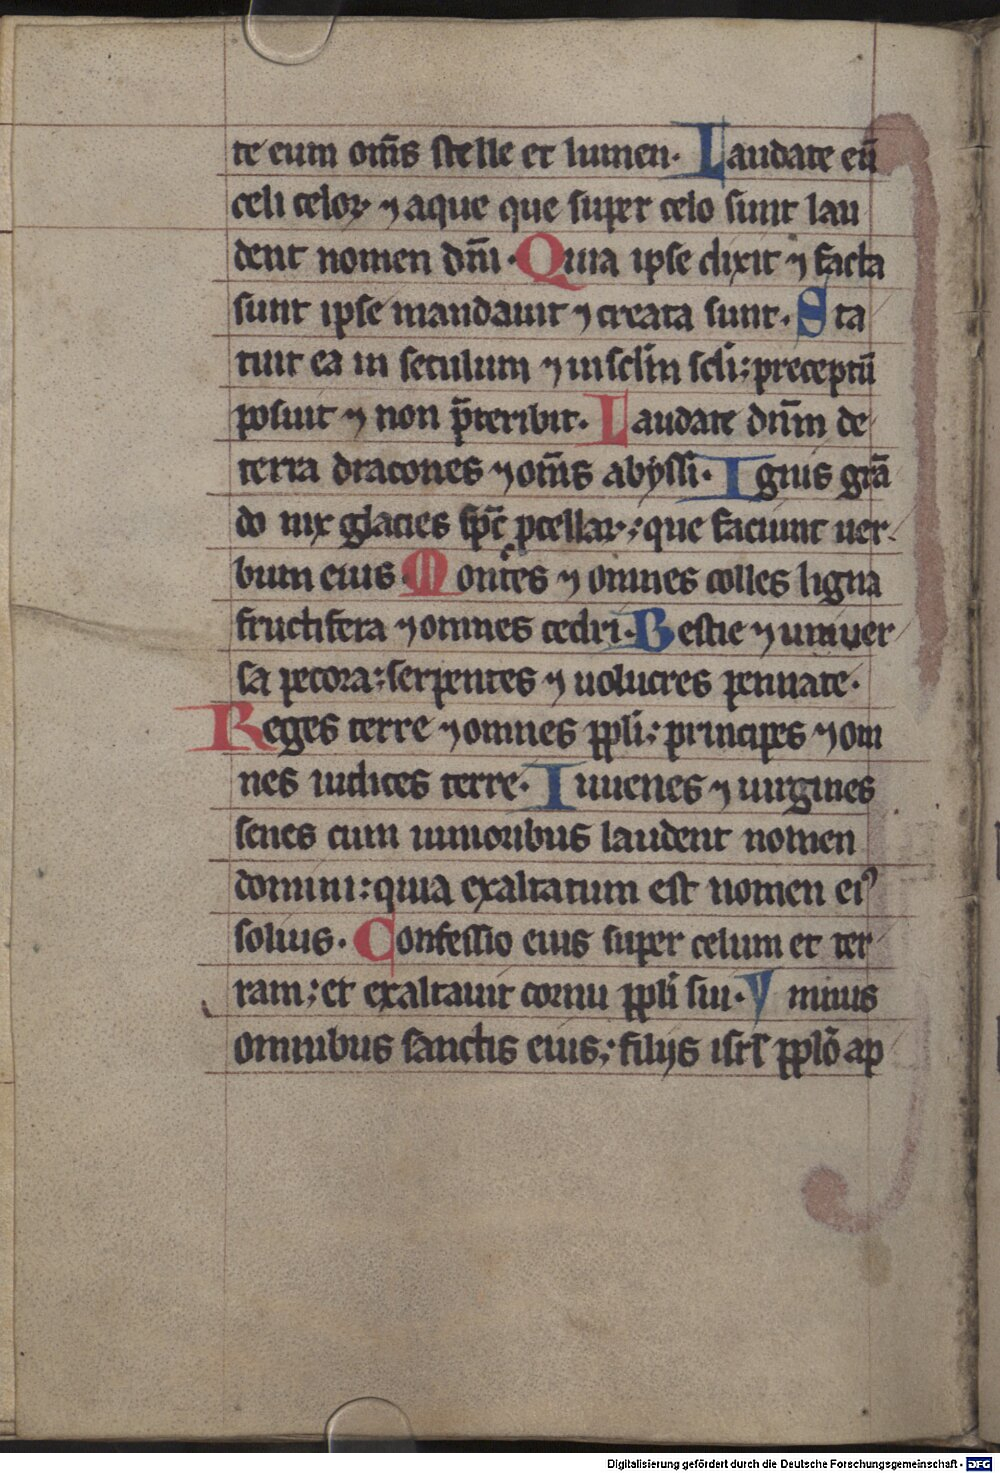 te eum om̅s stelle et lumen· Laudate eu̅
celi celoꝝ ⁊ aque que super celo sunt lau
dent nomen dn̅i · Quia ipse dixit ⁊ facta
sunt ipse mandauit ⁊ creata sunt· Sta
tuit ea in seculum ⁊ in scl̅m scl̅i; preceptu̅
posuit ⁊ non p̅teribit· Laudate dn̅m de
terra dracones ⁊ om̅s abyssi· Ignis gra̅
do nix glacies sp̅c pcellaꝝ; que faciunt uer
bum eius· Montes ⁊ omnes colles ligna
fructifera ⁊ omnes cedri· Bestie ⁊ uniuer
sa pecora; serpentes ⁊ uolucres pennate·
Reges terre ⁊ omnes ppl̅i; principes ⁊ om
nes iudices terre· Iuuenes ⁊ uirgines
senes cum iunioribus laudent nomen
domini: quia exaltatum est nomen eiꝰ
solius· Confessio eius super celum et ter
ram; et exaltauit cornu ppl̅i sui· Ymnus
omnibus sanctis eius; filijs isrl̅ ppl̅o ap
Digitalisierung gefördert durch die Deutsche Forschungsgemeinschaft - DFG